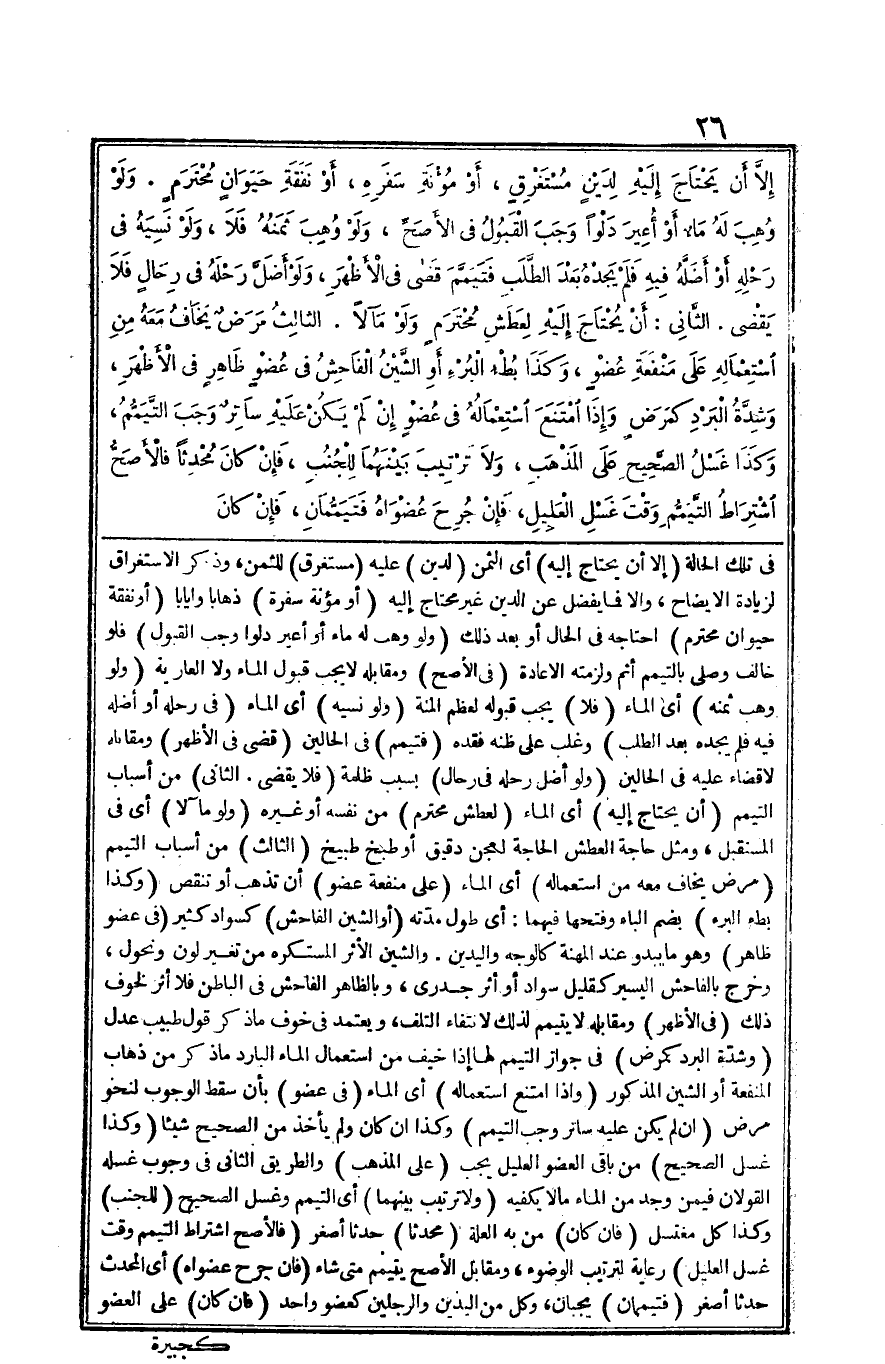 ٢٦
إِلاَّ أَن يَحْتَاجَ إِلَيْهِ لِدَيْنٍ مُسْتَغْرِقٍ ، أَوْ مُؤْنَةِ سَفَرِهِ ، أَوْ نَفَقَةِ حَيَوَانٍ مُحْتَرَمٍ . وَلَوْ
وُهِبَ لَهُ مَاءٌ أَوْ أُعِيرَ دَلْواً وَجَبَ الْقَبُولُ فى الأَصَحِّ ، وَلَوْ وُهِبَ ثَمَنُهُ فَلَا ، وَلَوْ نَسِيَهُ فى
رَحْلِهِ أَوْ أَضَلَّهُ فِيهِ فَلَمْ يَجِدْهُ بَعْدَ الطَّلَبِ فَتَيَمَّمَ قَضٰى فى الْأَظْهَرِ ، وَلَوْ أَضَلَّ رَحْلَهُ فى رِحَالٍ فَلَا
يَقْضى . الثَّانِي : أَنْ يُحْتَاجَ إِلَيْهِ لِعَطَشِ مُحْتَرَمٍ وَلَوْ مَآلاً . الثالِثُ مَرَضٌ يَخَافُ مَعَهُ مِنِ
ٱسْتِعْمَالِهِ عَلَى مَنْفَعَةِ عُضْوٍ ، وَكَذَا بُطْءُ الْبُرْءِ أَوِ الشَّيْنُ الْفَاحِشُ فى عُضْوٍ ظَاهِرٍ فى الْأَظْهَرِ ،
وَشِدَّةُ الْبَرْدِ كَمَرَضٍ وَإِذَا ٱمْتَنَعَ ٱسْتِعْمَالُهُ فى عُضْوٍ إِنْ لَمْ يَكُنْ عَلَيْهِ سَاتِرٌ وَجَبَ التَّيَمُّمُ ،
وَكَذَا غَسْلُ الصَّحِيحِ عَلَى المَذْهَبِ ، وَلاَ تَرْتِيبَ بَيْنَهُمَا لِلْجُنُبِ ، فَإِنْ كانَ مُحْدِثاً فالْأَصَحُّ
ٱشْتِرَاطُ التَّيَمُّمِ وَقْتَ غَسْلِ الْعَلِيلِ ، فَإِنْ جُرِحَ عُضْوَاهُ فَتَيَمُّمَانِ ، فَإِنْ كانَ
فى تلك الحالة ( إلا أن يحتاج إليه ) أى الثمن ( لدين ) عليه ( مستغرق ) للثمن ، وذكر الاستغراق
لزيادة الايضاح ، والا فما يفضل عن الدين غير محتاج إليه ( أو مؤنة سفرة ) ذهابا وايابا ( أو نفقة
حيوان محترم ) احتاجه فى الحال أو بعد ذلك ( ولو وهب له ماء أو أعير دلوا وجب القبول ) فلو
خالف وصلى بالتيمم أثم ولزمته الاعادة ( فى الأصح ) ومقابله لا يجب قبول الماء ولا العارية ( ولو
وهب ثمنه ) أى الماء ( فلا ) يجب قبوله لعظم المنة ( ولو نسيه ) أى الماء ( فى رحله أو أضله
فيه فلم يجده بعد الطلب ) وغلب على ظنه فقده ( فتيمم ) فى الحالين ( قضى فى الأظهر ) ومقابله
لا قضاء عليه فى الحالين ( ولو أضل رحله فى رحال ) بسبب ظلمة ( فلا يقضى . الثانى ) من أسباب
التيمم ( أن يحتاج إليه ) أى الماء ( لعطش محترم ) من نفسه أو غيره ( ولو مآلا ) أى فى
المستقبل ، ومثل حاجة العطش الحاجة لعجن دقيق أو طبخ طبيخ ( الثالث ) من أسباب التيمم
( مرض يخاف معه من استعماله ) أى الماء ( على منفعة عضو ) أن تذهب أو تنقص ( وكذا
بطء البرء ) بضم الباء وفتحها فيهما : أى طول مدّته ( أو الشين الفاحش ) كسواد كثير ( فى عضو
ظاهر ) وهو مايبدو عند المهنة كالوجه واليدين . والشين الأثر المستكره من تغير لون ونحول ،
وخرج بالفاحش اليسير كقليل سواد أو أثر جدرى ، وبالظاهر الفاحش فى الباطن فلا أثر لخوف
ذلك ( فى الأظهر ) ومقابله لا يتيمم لذلك لانتفاء التلف ، ويعتمد فى خوف ماذكر قول طبيب عدل
( وشدّة البرد كمرض ) فى جواز التيمم لها إذا خيف من استعمال الماء البارد ماذكر من ذهاب
المنفعة أو الشين المذكور ( واذا امتنع استعماله ) أى الماء ( فى عضو ) بأن سقط الوجوب لنحو
مرض ( ان لم يكن عليه ساتر وجب التيمم ) وكذا ان كان ولم يأخذ من الصحيح شيئا ( وكذا
غسل الصحيح ) من باقى العضو العليل يجب ( على المذهب ) والطريق الثانى فى وجوب غسله
القولان فيمن وجد من الماء مالا يكفيه ( ولاترتيب بينهما ) أى التيمم وغسل الصحيح ( للجنب )
وكذا كل مغتسل ( فان كان ) من به العلة ( محدثا ) حدثا أصغر ( فالأصح اشتراط التيمم وقت
غسل العليل ) رعاية لترتيب الوضوء ، ومقابل الأصح يتيمم متى شاء ( فان جرح عضواه ) أى المحدث
حدثا أصغر ( فتيممان ) يجبان ، وكل من اليدين والرجلين كعضو واحد ( فان كان ) على العضو
كجبيرة